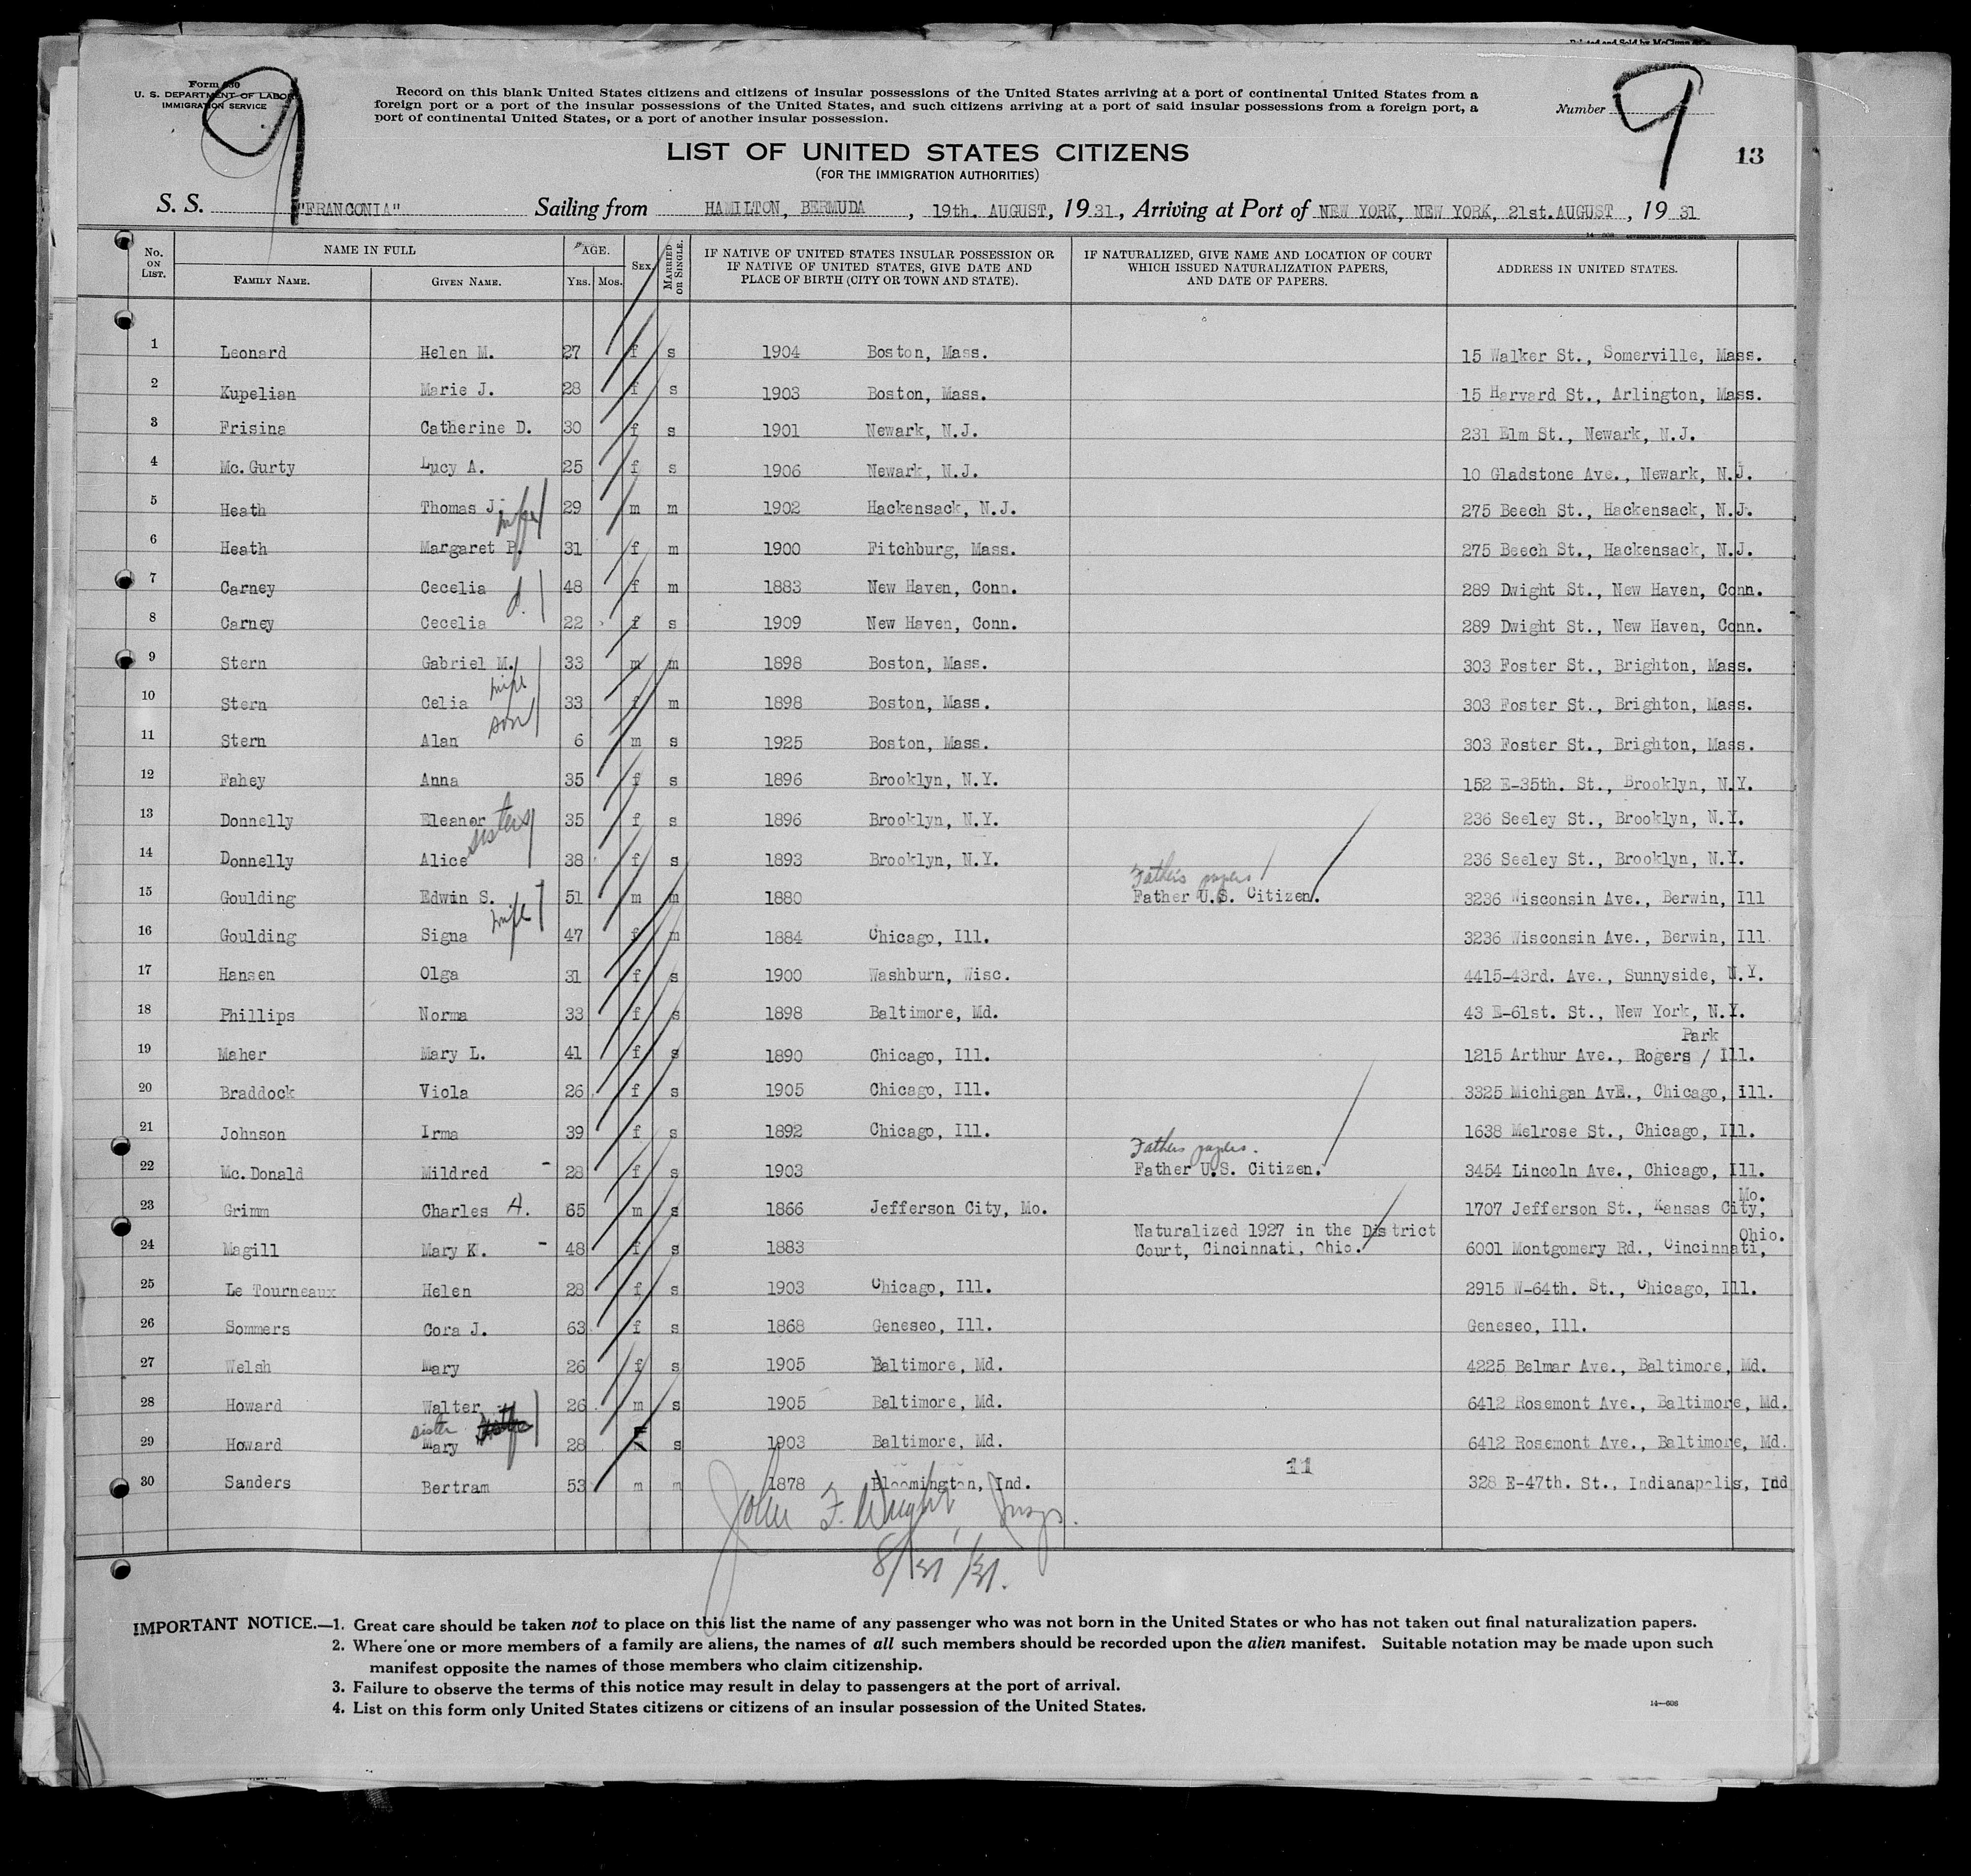 Form 630
U. S. DEPARTMENT OF LABOR
IMMIGRATION SERVICE
9
Record on this blank United States citizens and citizens of insular possessions of the United States arriving at a port of continental United States from a
foreign port or a port of the insular possessions of the United States, and such citizens arriving at a port of said insular possessions from a foreign port, a
port of continental United States, or a port of another insular possession.
Number 9
13
LIST OF UNITED STATES CITIZENS
(FOR THE IMMIGRATION AUTHORITIES)
S. S. "FRANCONIA" Sailing from HAMILTON, BERMUDA, 19th. AUGUST, 1931, Arriving at Port of NEW YORK, NEW YORK, 21st. AUGUST, 1931
No. ON LIST. NAME IN FULL FAMILY NAME. GIVEN NAME. AGE. YRS. MOS. SEX MARRIED OR SINGLE. IF NATIVE OF UNITED STATES INSULAR POSSESSION OR IF NATIVE OF UNITED STATES, GIVE DATE AND PLACE OF BIRTH (CITY OR TOWN AND STATE). IF NATURALIZED, GIVE NAME AND LOCATION OF COURT WHICH ISSUED NATURALIZATION PAPERS, AND DATE OF PAPERS. ADDRESS IN UNITED STATES.
1 Leonard Helen M. 27 f s 1904 Boston, Mass. 15 Walker St., Somerville, Mass.
2 Kupelian Marie J. 28 f s 1903 Boston, Mass. 15 Harvard St., Arlington, Mass.
3 Frisina Catherine D. 30 f s 1901 Newark, N.J. 231 Elm St., Newark, N.J.
4 Mc.Gurty Lucy A. 25 f s 1906 Newark, N.J. 10 Gladstone Ave., Newark, N.J.
5 Heath Thomas J. 29 m m 1902 Hackensack, N.J. 275 Beech St., Hackensack, N.J.
wife
6 Heath Margaret P. 31 f m 1900 Fitchburg, Mass. 275 Beech St., Hackensack, N.J.
7 Carney Cecelia 48 f m 1883 New Haven, Conn. 289 Dwight St., New Haven, Conn.
d.
8 Carney Cecelia 22 f s 1909 New Haven, Conn. 289 Dwight St., New Haven, Conn.
9 Stern Gabriel M. 33 m m 1898 Boston, Mass. 303 Foster St., Brighton, Mass.
wife
10 Stern Celia 33 f m 1898 Boston, Mass. 303 Foster St., Brighton, Mass.
son
11 Stern Alan 6 m s 1925 Boston, Mass. 303 Foster St., Brighton, Mass.
12 Fahey Anna 35 f s 1896 Brooklyn, N.Y. 152 E-35th. St., Brooklyn, N.Y.
13 Donnelly Eleanor 35 f s 1896 Brooklyn, N.Y. 236 Seeley St., Brooklyn, N.Y.
sisters
14 Donnelly Alice 38 f s 1893 Brooklyn, N.Y. 236 Seeley St., Brooklyn, N.Y.
Father's papers
15 Goulding Edwin S. 51 m m 1880 Father U.S. Citizen. 3236 Wisconsin Ave., Berwin, Ill
wife
16 Goulding Signa 47 f m 1884 Chicago, Ill. 3236 Wisconsin Ave., Berwin, Ill.
17 Hansen Olga 31 f s 1900 Washburn, Wisc. 4415-43rd. Ave., Sunnyside, N.Y.
18 Phillips Norma 33 f s 1898 Baltimore, Md. 43 E-61st. St., New York, N.Y.
Park
19 Maher Mary L. 41 f s 1890 Chicago, Ill. 1215 Arthur Ave., Rogers / Ill.
20 Braddock Viola 26 f s 1905 Chicago, Ill. 3325 Michigan AvE., Chicago, Ill.
21 Johnson Irma 39 f s 1892 Chicago, Ill. 1638 Melrose St., Chicago, Ill.
Fathers papers.
22 Mc.Donald Mildred - 28 f s 1903 Father U.S. Citizen. 3454 Lincoln Ave., Chicago, Ill.
Mo.
23 Grimm Charles A. 65 m s 1866 Jefferson City, Mo. 1707 Jefferson St., Kansas City,
Naturalized 1927 in the District Ohio.
24 Magill Mary K. - 48 f s 1883 Court, Cincinnati, Ohio. 6001 Montgomery Rd., Cincinnati,
25 Le Tourneaux Helen 28 f s 1903 Chicago, Ill. 2915 W-64th. St., Chicago, Ill.
26 Sommers Cora J. 63 f s 1868 Geneseo, Ill. Geneseo, Ill.
27 Welsh Mary 26 f s 1905 Baltimore, Md. 4225 Belmar Ave., Baltimore, Md.
28 Howard Walter 26 m s 1905 Baltimore, Md. 6412 Rosemont Ave., Baltimore, Md.
sister
29 Howard Mary 28 F s 1903 Baltimore, Md. 6412 Rosemont Ave., Baltimore, Md.
11
30 Sanders Bertram 53 m m 1878 Bloomington, Ind. 328 E-47th. St., Indianapolis, Ind
John F. Wright, Insp.
8/21/31.
IMPORTANT NOTICE.—1. Great care should be taken not to place on this list the name of any passenger who was not born in the United States or who has not taken out final naturalization papers.
2. Where one or more members of a family are aliens, the names of all such members should be recorded upon the alien manifest. Suitable notation may be made upon such
manifest opposite the names of those members who claim citizenship.
3. Failure to observe the terms of this notice may result in delay to passengers at the port of arrival.
4. List on this form only United States citizens or citizens of an insular possession of the United States.
14—608